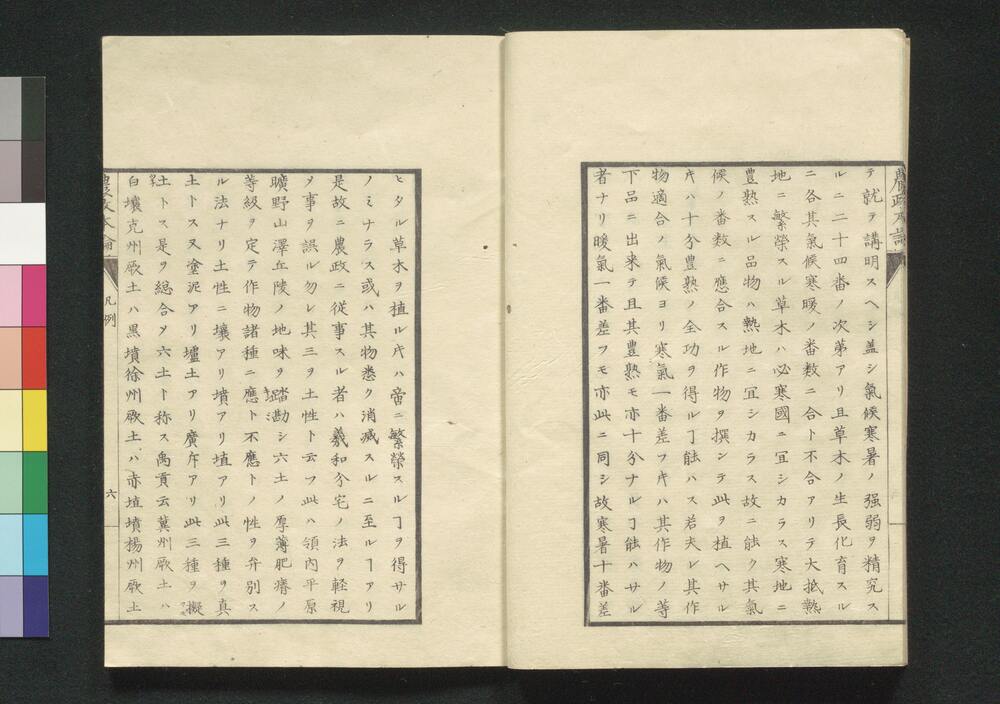 テ就テ講明スヘシ蓋シ氣候寒暑ノ强弱ヲ精究ス
ルニ二十四番ノ次第アリ且草木ノ生長化育スル
ニ各其氣候寒暖ノ番数ニ合ト不合アリテ大抵熱
地ニ繁榮スル草木ハ必寒國ニ冝シカラス寒地ニ
豊熟スル品物ハ熱地ニ冝シカラス故ニ能ク其氣
候ノ番数ニ應合スル作物ヲ撰シテ此ヲ植ヘサル
キハ十分豊熟ノ全功ヲ得ルヿ能ハス若夫レ其作
物適合ノ氣候ヨリ寒氣一番差フキハ其作物ノ等
下品ニ出来テ且其豊熟モ亦十分ナルヿ能ハサル
者ナリ暖氣一番差フモ亦此ニ同シ故寒暑十番差
農政本論
ヒタル草木ヲ植ルキハ啻ニ繁榮スルヿヲ得サル
ノミナラス或ハ其物悉ク消滅スルニ至ルヿアリ
是故ニ農政ニ從事スル者ハ羲和分宅ノ法ヲ軽視
ヲ事ヲ誤ル勿レ其三ヲ土性ト云フ此ハ領内平原
曠野山澤丘陵ノ地味ヲ踏勘シ六土ノ厚薄肥瘠ノ
等級ヲ定テ作物諸種ニ應ト不應トノ性ヲ弁別ス
ル法ナリ土性ニ壤アリ墳アリ埴アリ此三種ヲ真
土トス又塗泥アリ壚土アリ廣斥アリ此三種ヲ擬
土トス是ヲ総合メ六土ト称ス禹貢云冀州厥土ハ
白壤兗州厥土ハ黒墳徐州厥土ハ赤埴墳揚州厥土
農政本論
凡例
六